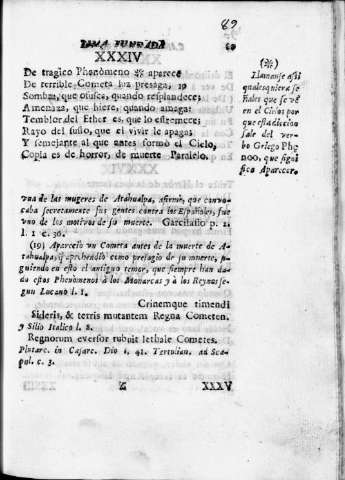 89
LIMA FUNDADA
69
XXXIV
De tragico Phenòmeno ※ aparece
De terrible Cometa luz presaga, 19
Sombra, que ofusca, quando resplandece;
Amenaza, que hiere, quando amaga:
Temblor del Ether es, que lo estremece;
Rayo del susto, que el vivir le apaga:
Y semejante al que antes formò el Cielo,
Copia es de horror, de muerte Paralelo.
(※)
Llamanse assi
qualesquiera se
ñales que se vè
en el Cielo; por
que esta diccion
sale del ver-
bo Griego Phę
noo, que signi
fica Aparecer.
vna de las mugeres de Atahualpa, afirmò, que convo-
caba secretamente sus gentes contra los Españoles, fue
vno de los motivos de su muerte. Garcilasso p. 2.
l. 1 c. 36.
(19) Apareciò un Cometa antes de la muerte de A-
tahualpa, q̃ aprehendiò como presagio de su muerte, si-
guiendo en esto el antiguo temor, que siempre han da-
do estos Phenòmenos à los Monarcas y à los Reynos se-
gun Lucano l. 1.
Crinemque timendi
Sideris, & terris mutantem Regna Cometen.
y Silio Italico l. 8.
Regnorum eversor rubuit lethale Cometes.
Plutarc. in Cæsar. Dio l. 41. Tertulian. ad Sca-
pul. c. 3.
Z
XXXV